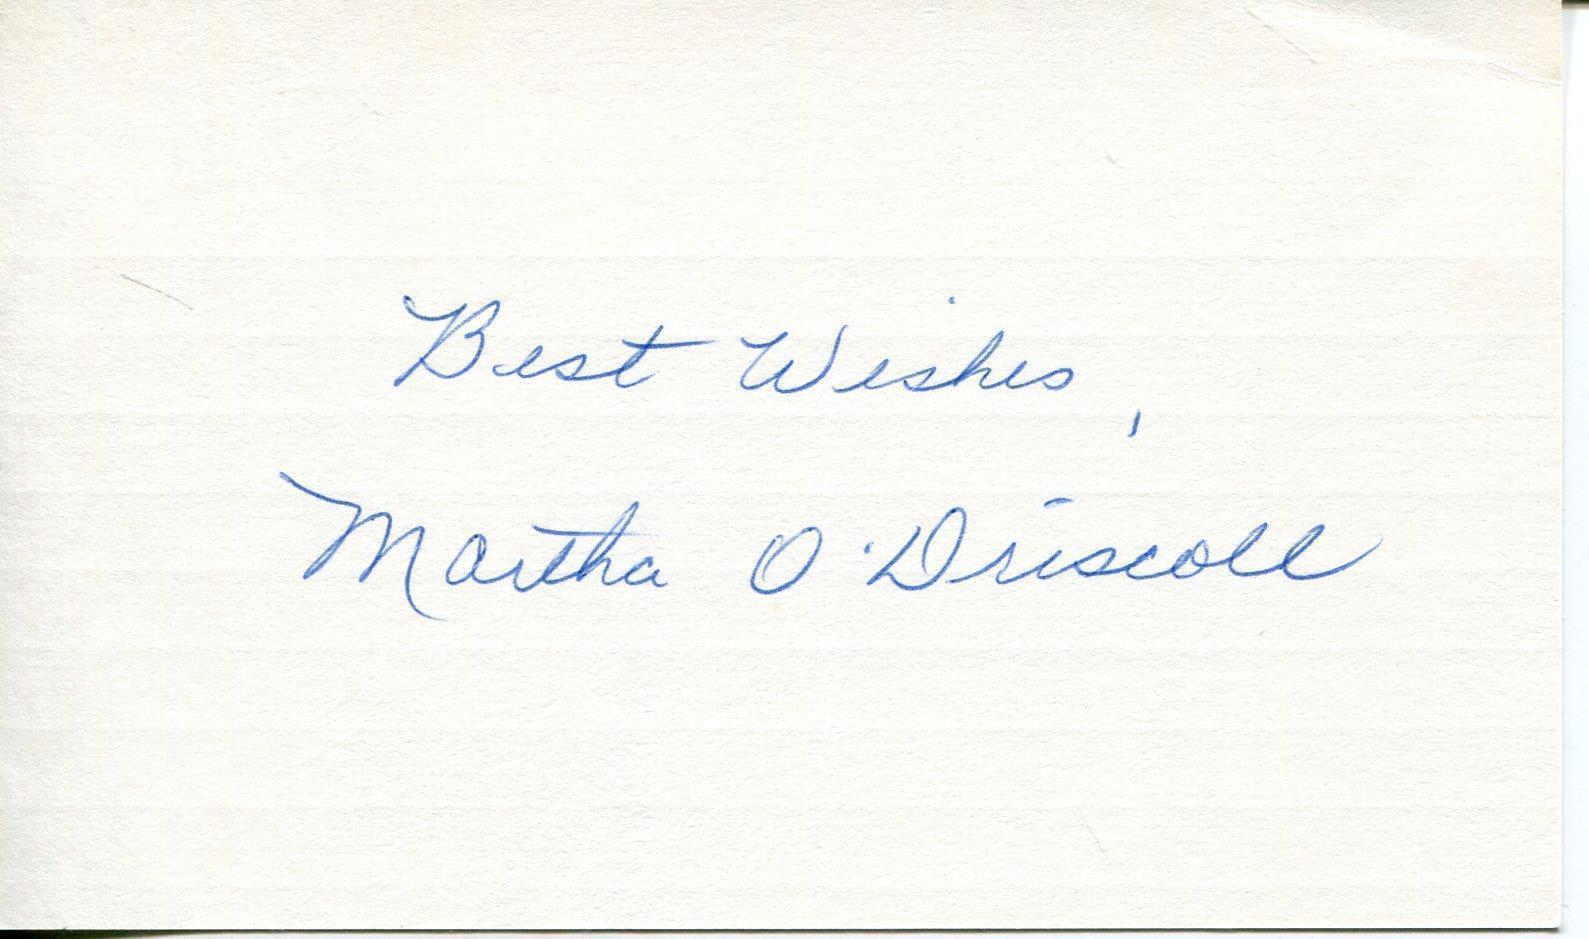 Best Wishes,
Martha O'Driscoll